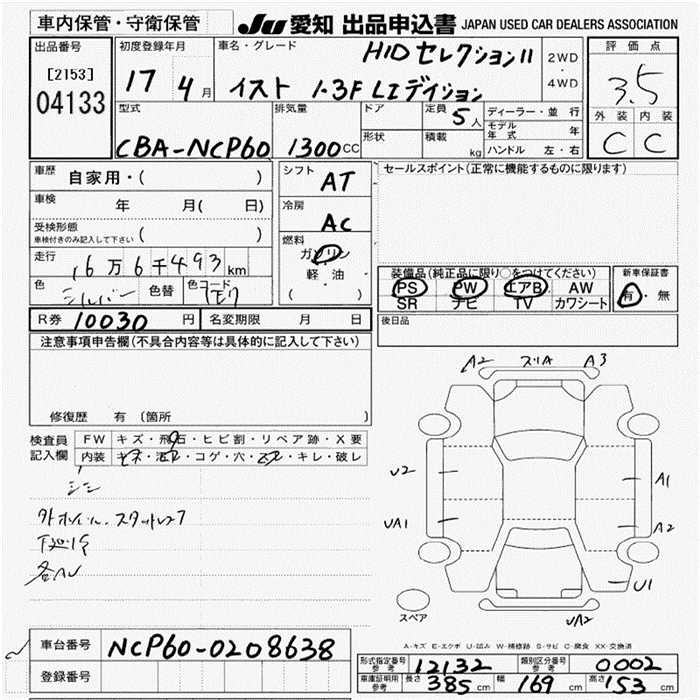 車内保管・守衛保管
JU 愛知 出品申込書 JAPAN USED CAR DEALERS ASSOCIATION
出品番号
[2153]
04133
初度登録年月
17 4月
車名・グレード
HID セレクション II
イスト 1.3F L エディション
2WD
・
4WD
評価点
3.5
外装 内装
C C
型式
CBA-NCP60
排気量
1300cc
ドア
形状
定員
5人
積載
kg
ディーラー・並行
モデル年式 年
ハンドル 左・右
車歴 自家用・( )
車検 年 月( 日)
受検形態
車検付きのみ記入して下さい ( )
走行
16万6千493km
色 シルバー 色替 色コード 1E7
シフト
AT
冷房
AC
燃料
ガソリン
軽油
( )
セールスポイント(正常に機能するものに限ります)
装備品(純正品に限り○をつけてください)
PS PW エアB AW
SR ナビ TV カワシート
新車保証書
有・無
R券 10030円 名変期限 月 日
後日品
注意事項申告欄(不具合内容等は具体的に記入して下さい)
修復歴 有 (箇所 )
検査員
記入欄
FW キズ・飛石・ヒビ割・リペア跡・X要
内装 キズ・汚れ・コゲ・穴・スレ・キレ・破レ
下廻り
A2 スリA A3
U2
UA1
A1
A2
U1
UA2
スペア
A-キズ E-エクボ U-凹み W-補修跡 S-サビ C-腐食 XX-交換済
車台番号 NCP60-0208638
登録番号
型式指定番号
参考 12132
類別区分番号
参考 0002
車庫証明用
参考 長さ 385cm 幅 169cm 高さ 153cm